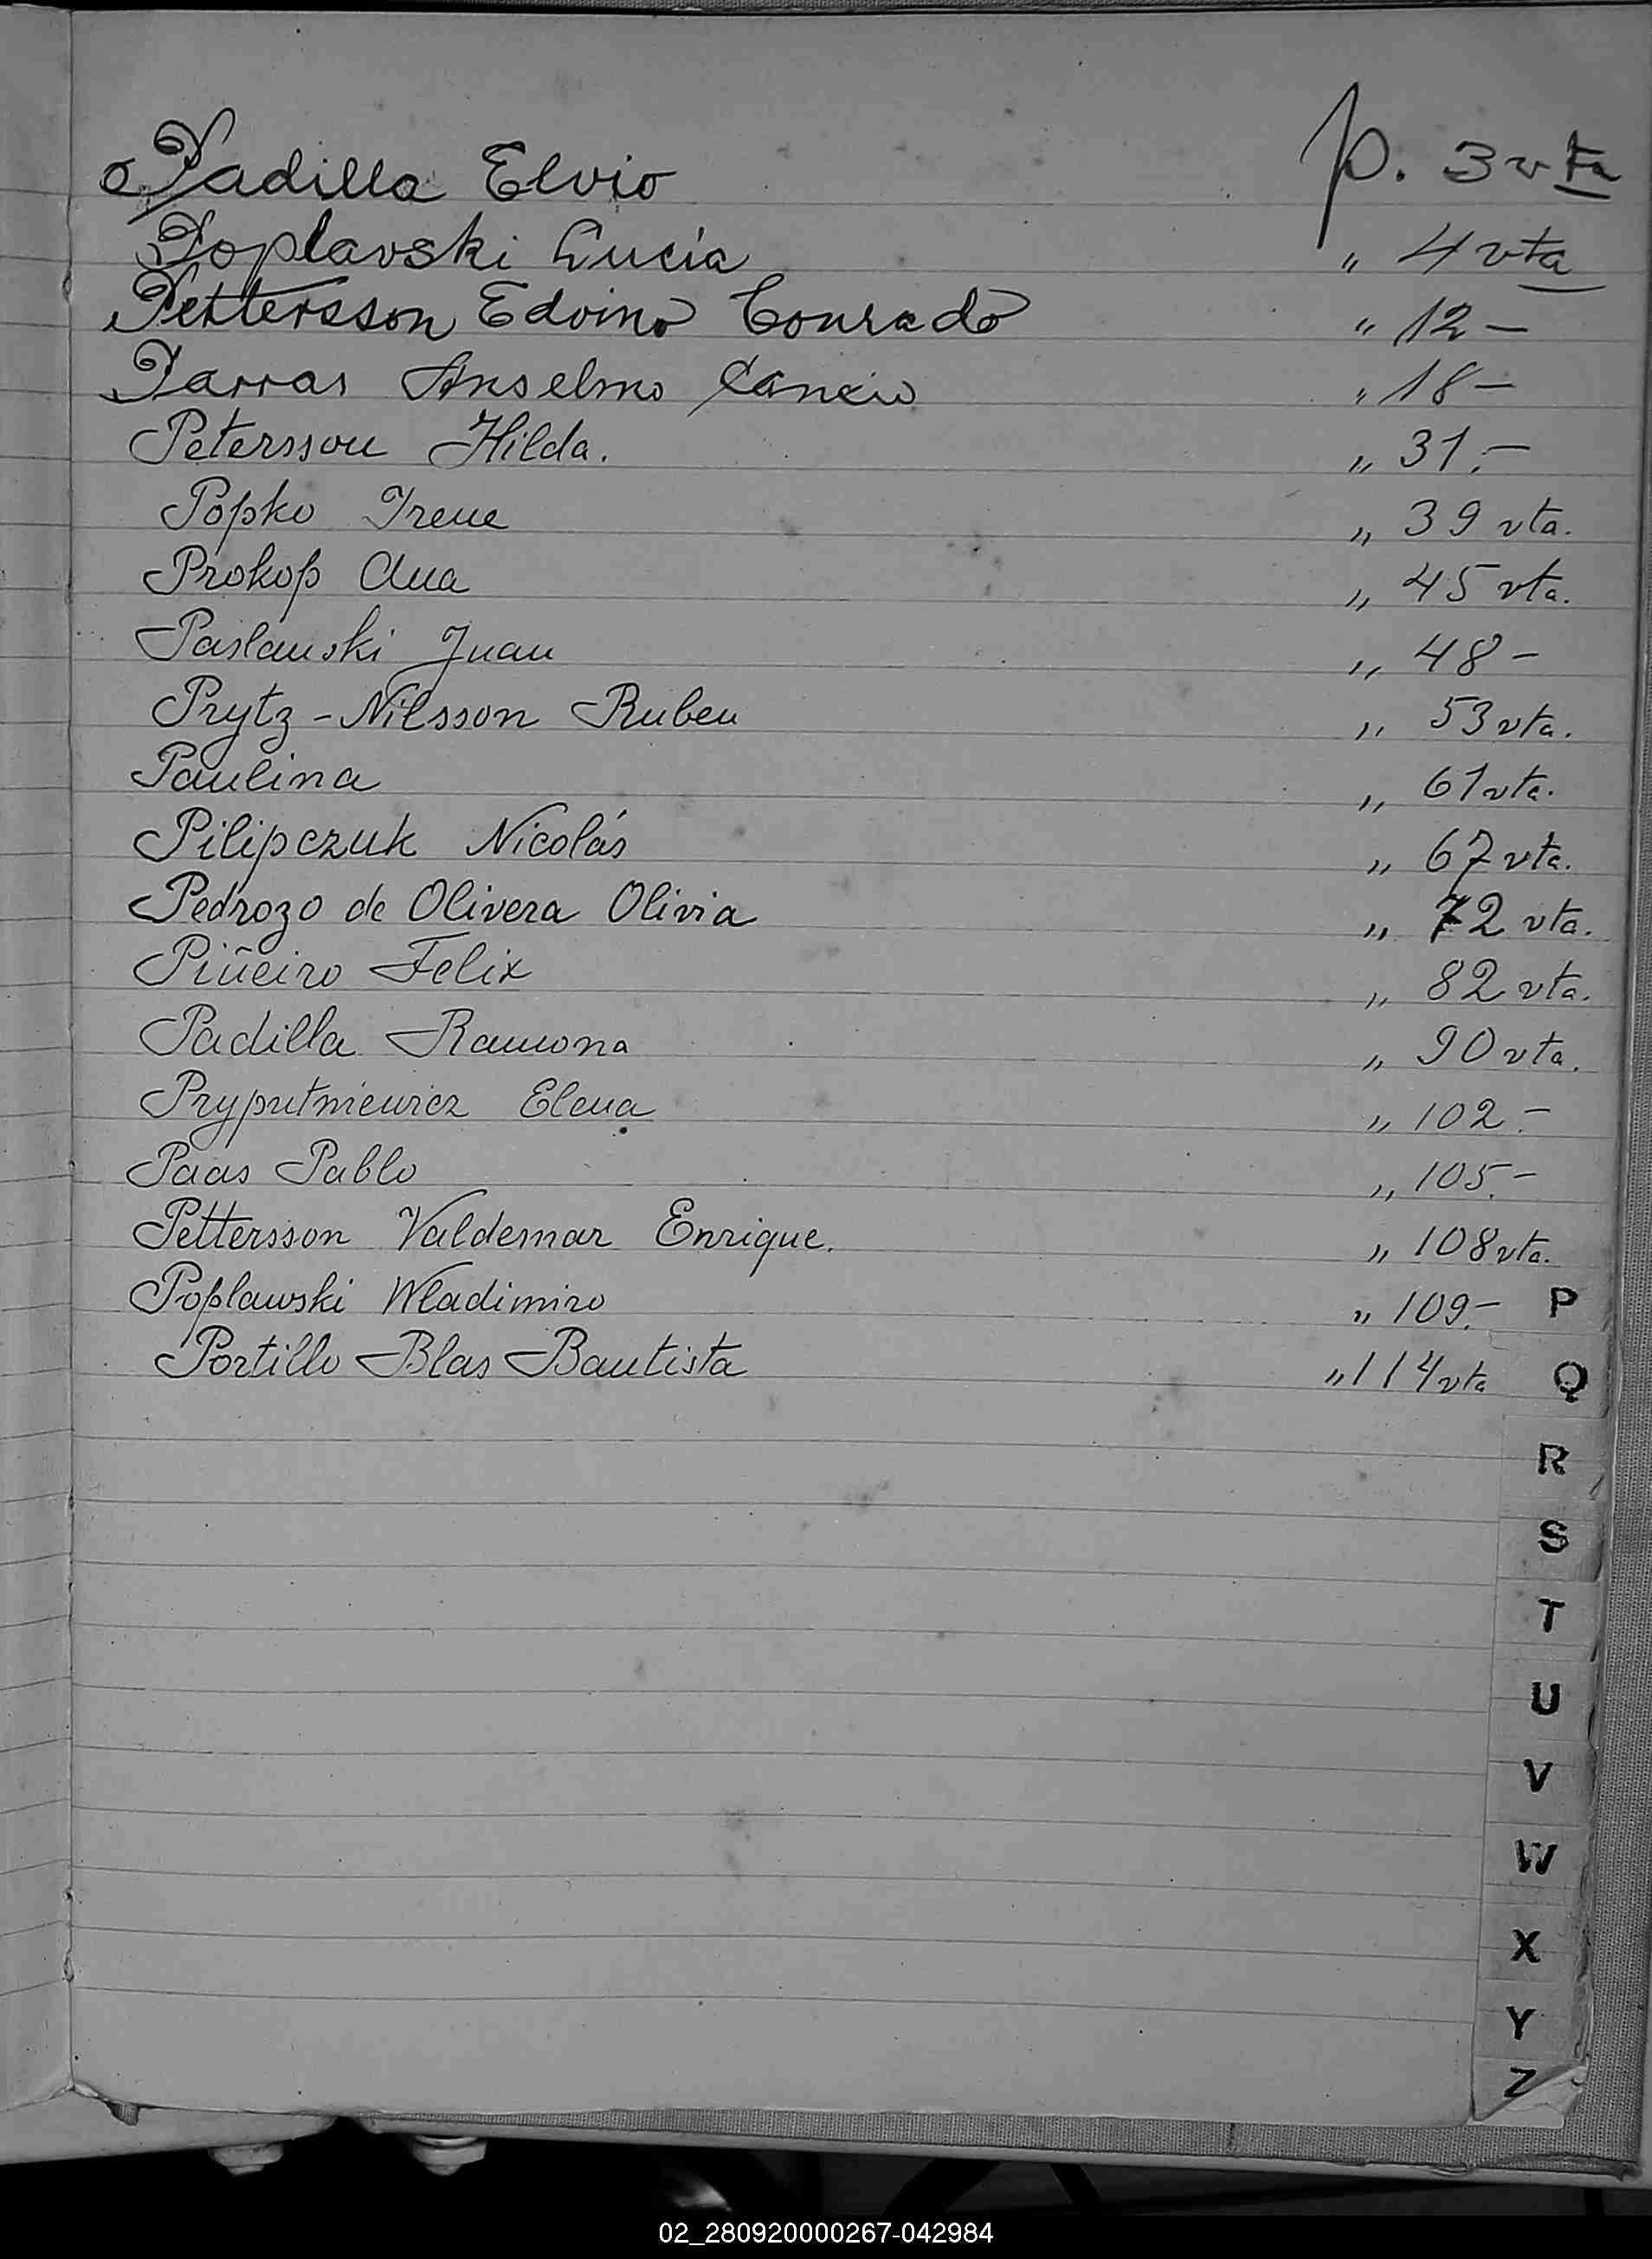 Padilla Elvio p. 3 vta
Poplavski Lucía " 4 vta
Pettersson Edvino Conrado " 12 —
Parras Anselmo " 18 —
Petersson Hilda. " 31.—
Popko Irene " 39 vta.
Prokop Ana " 45 vta.
Paslauski Juan " 48 —
Prytz - Nilsson Ruben " 53 vta.
Paulina " 61 vta.
Pilipczuk Nicolás " 67 vta.
Pedrozo de Olivera Olivia " 72 vta.
Piñeiro Felix " 82 vta.
Padilla Ramona " 90 vta.
Pryputniewicz Elena " 102.—
Paas Pablo " 105.—
Pettersson Valdemar Enrique. " 108 vta.
Poplawski Wladimiro " 109.— P
Portillo Blas Bautista " 114 vta Q
R
S
T
U
V
W
X
Y
Z
02_280920000267-042984